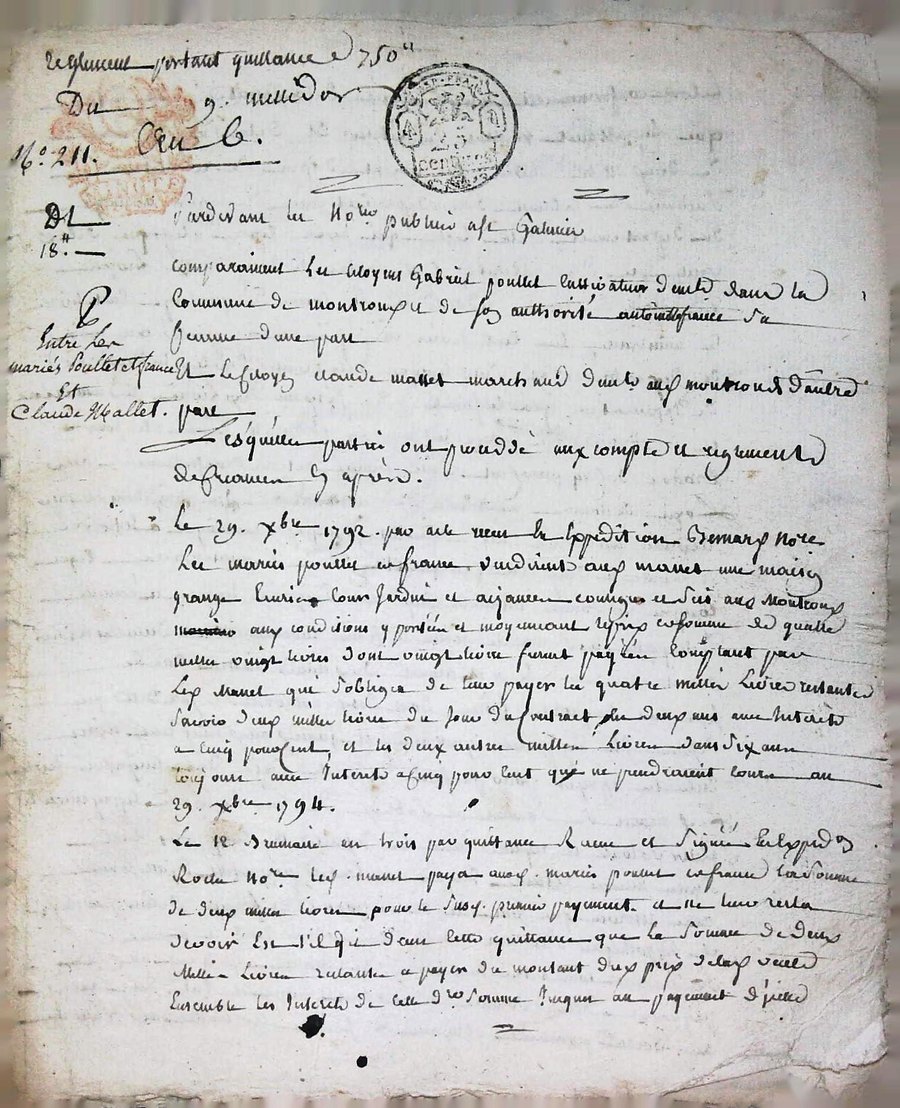 Reglement portant quittance de 750#
Du 9. messidor
An 6.
N.º 211.
25
centimes
Dt
18# —
Entre Les
mariés Poullet et france
Et
Claude Mallet.
Pardevant les Nores publics a St Galmier
comparaissent Les citoyens Gabriel poullet cultivateur dem.t dans la
Commune de montrond et de son authorité sa
femme d'une part
Et Le Citoyen claude mallet marchand dem.t aud. montrond d'autre
part
Lesquelles parties ont procédé aux compte et reglements
de finances cy après.
Le 29. xbre 1792. par acte recu Nore
Les mariés poullet et france vendirent aud. mallet une maison
grange Ecurie Cour Jardin et aisances contigus et sis aud. Montrond
aux conditions y portées et moyennant le prix et somme de quatre
mille vingt livres dont vingt livres furent payées Comptant par
Led. Mallet qui s'obligea de leur payer les quatre mille Livres restantes
savoir deux mille livres du jour du Contract en deux ans avec Interets
a Cinq pour Cent, et les deux autres mille Livres dans six ans
toujours avec Interets a cinq pour Cent qui ne prendraient cours au
29. xbre 1794.
Le 12 Brumaire an trois par quittance Recue et Signée
Nore led. mallet paya aud. mariés poullet et france la somme
de deux mille livres pour le susd. premier payement. et ne leur resta
devoir Est il dit dans cette quittance que La Somme de deux
Mille Livres restante a payer du montant du prix de lad. vente
Ensemble les Interets de cette dre Somme Jusques au payement d'icelle